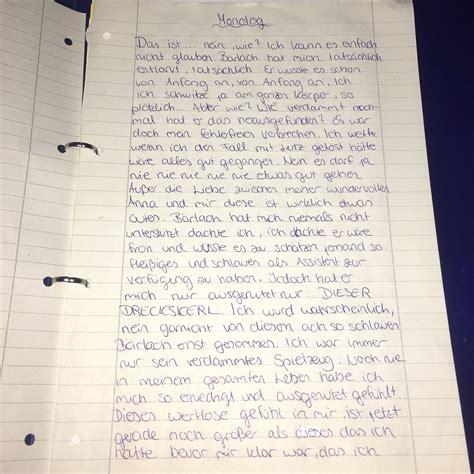 Monolog
Das ist... nein, wie? Ich kann es einfach
nicht glauben Bärlach hat mich tatsächlich
entlarvt, tatsächlich. Er wusste es schon
von Anfang an, von Anfang an. Ich
ich schwitze ja am ganzen Körper, so
plötzlich. Aber wie? Wie verdammt noch-
mal hat er das herausgefunden? Es war
doch mein fehlerfreies Verbrechen. Ich wette
wenn ich den Fall mit Lutz gelöst hätte
wäre alles gut gegangen. Nein es darf ja
nie nie nie nie nie etwas gut gehen.
Außer die Liebe zwischen meiner wundervollen
Anna und mir diese ist wirklich etwas
Gutes. Bärlach hat mich niemals nicht
unterstützt dachte ich, ich dachte er wäre
froh und wusste es zu schätzen jemand so
fleißiges und schlaues als Assistent zur
verfügung zu haben. Jedoch hat er
mich nur ausgenutzt nur... DIESER
DRECKSKERL. Ich wurd wahrscheinlich,
nein garnicht von diesem ach so schlauen
Bärlach ernst genommen. Ich war immer
nur sein verdammtes Spielzeug. Noch nie
in meinem gesamten Leben habe ich
mich so erniedrigt und ausgenutzt gefühlt.
Dieses wertlose gefühl in mir ist jetzt
gerade noch größer als dieses das ich
hatte bevor mir klar war, das ich